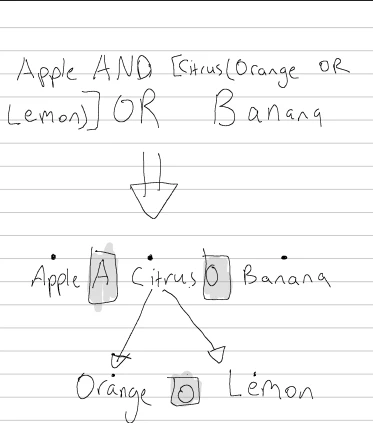 Apple AND [Citrus(Orange OR
Lemon)] OR Banana
Apple A Citrus O Banana
Orange O Lemon